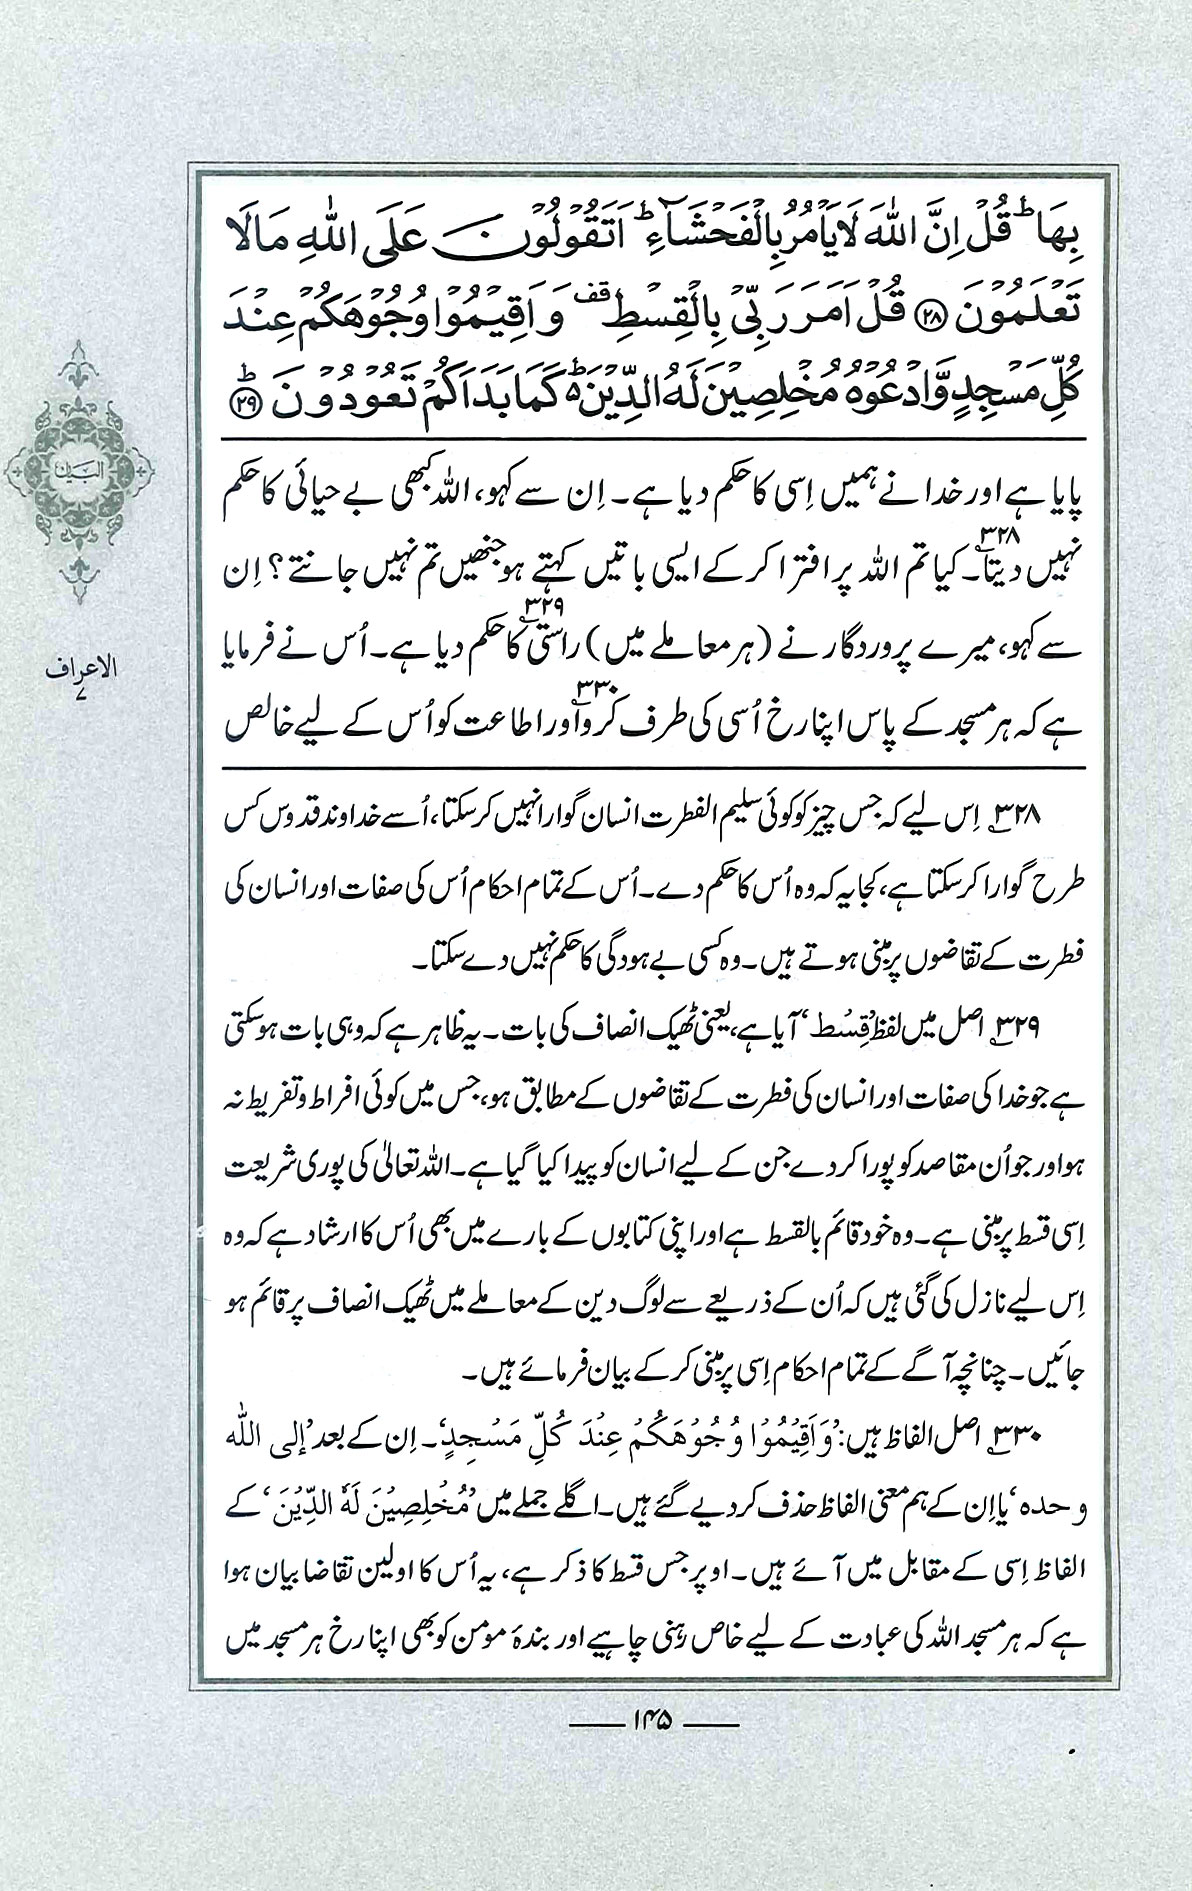 بِهَا ؕ قُلْ اِنَّ اللّٰهَ لَا يَاْمُرُ بِالْفَحْشَآءِ ؕ اَتَقُوْلُوْنَ عَلَى اللّٰهِ مَا لَا
تَعْلَمُوْنَ ﴿۲۸﴾ قُلْ اَمَرَ رَبِّىْ بِالْقِسْطِ قف وَ اَقِيْمُوْا وُجُوْهَكُمْ عِنْدَ
كُلِّ مَسْجِدٍ وَّ ادْعُوْهُ مُخْلِصِيْنَ لَهُ الدِّيْنَ ؕ۬ كَمَا بَدَاَكُمْ تَعُوْدُوْنَ ؕ ﴿۲۹﴾
پایا ہے اور خدا نے ہمیں اِسی کا حکم دیا ہے۔ اِن سے کہو، اللہ کبھی بے حیائی کا حکم
نہیں دیتا۔۳۲۸ کیا تم اللہ پر افترا کر کے ایسی باتیں کہتے ہو جنھیں تم نہیں جانتے؟ اِن
سے کہو، میرے پروردگار نے (ہر معاملے میں) راستی۳۲۹ کا حکم دیا ہے۔ اُس نے فرمایا
ہے کہ ہر مسجد کے پاس اپنا رخ اُسی کی طرف کرو۳۳۰ اور اطاعت کو اُس کے لیے خالص
۳۲۸ اِس لیے کہ جس چیز کو کوئی سلیم الفطرت انسان گوارا نہیں کر سکتا، اُسے خداوند قدوس کس
طرح گوارا کر سکتا ہے، کجا یہ کہ وہ اُس کا حکم دے۔ اُس کے تمام احکام اُس کی صفات اور انسان کی
فطرت کے تقاضوں پر مبنی ہوتے ہیں۔ وہ کسی بے ہودگی کا حکم نہیں دے سکتا۔
۳۲۹ اصل میں لفظ ’قِسْط‘ آیا ہے، یعنی ٹھیک انصاف کی بات۔ یہ ظاہر ہے کہ وہی بات ہو سکتی
ہے جو خدا کی صفات اور انسان کی فطرت کے تقاضوں کے مطابق ہو، جس میں کوئی افراط و تفریط نہ
ہو اور جو اُن مقاصد کو پورا کر دے جن کے لیے انسان کو پیدا کیا گیا ہے۔ اللہ تعالیٰ کی پوری شریعت
اِسی قسط پر مبنی ہے۔ وہ خود قائم بالقسط ہے اور اپنی کتابوں کے بارے میں بھی اُس کا ارشاد ہے کہ وہ
اِس لیے نازل کی گئی ہیں کہ اُن کے ذریعے سے لوگ دین کے معاملے میں ٹھیک انصاف پر قائم ہو
جائیں۔ چنانچہ آگے کے تمام احکام اِسی پر مبنی کر کے بیان فرمائے ہیں۔
۳۳۰ اصل الفاظ ہیں: ’وَاَقِيْمُوْا وُجُوْهَكُمْ عِنْدَ كُلِّ مَسْجِدٍ‘۔ اِن کے بعد ’إلى الله
وحده‘ یا اِن کے ہم معنی الفاظ حذف کر دیے گئے ہیں۔ اگلے جملے میں ’مُخْلِصِيْنَ لَهُ الدِّيْنَ‘ کے
الفاظ اِسی کے مقابل میں آئے ہیں۔ اوپر جس قسط کا ذکر ہے، یہ اُس کا اولین تقاضا بیان ہوا
ہے کہ ہر مسجد اللہ کی عبادت کے لیے خاص رہنی چاہیے اور بندۂ مومن کو بھی اپنا رخ ہر مسجد میں
البیان
الاعراف
۷
۱۴۵